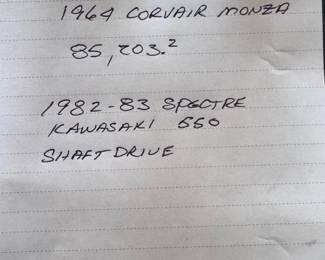 1964 CORVAIR MONZA
85,203.2
1982-83 SPECTRE
KAWASAKI 550
SHAFT DRIVE